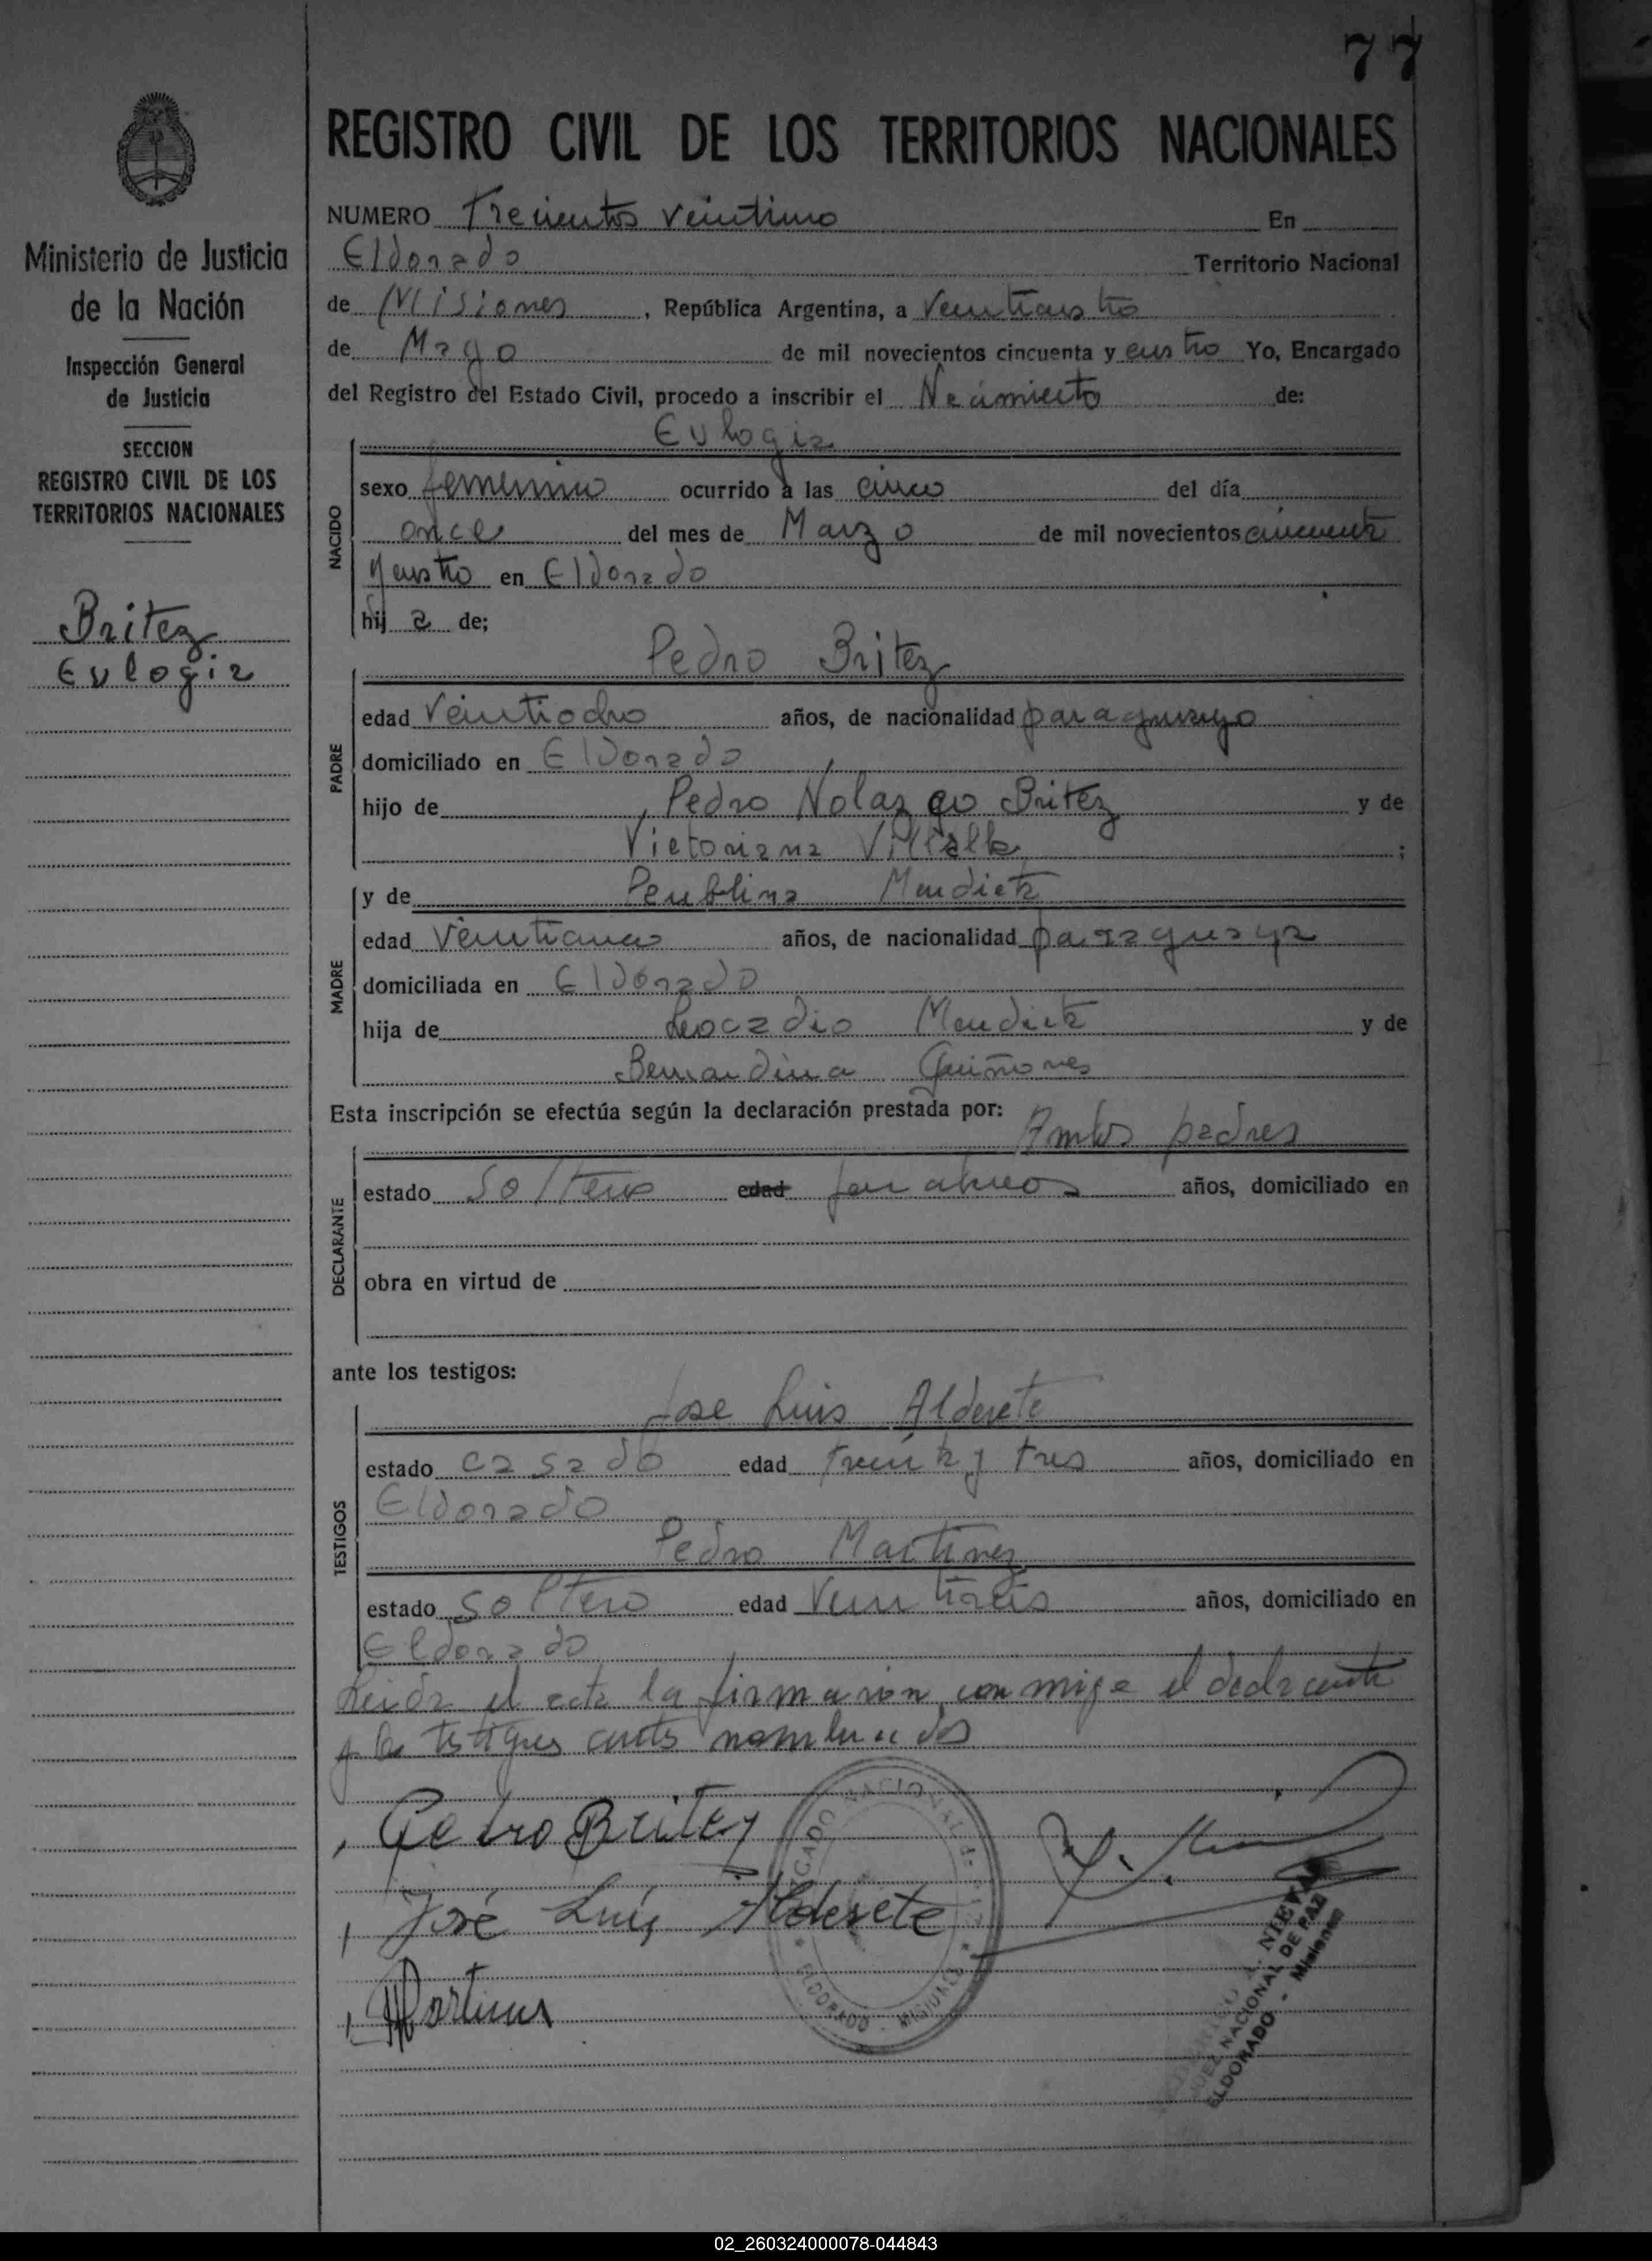 77
REGISTRO CIVIL DE LOS TERRITORIOS NACIONALES
Ministerio de Justicia
de la Nación
Inspección General
de Justicia
SECCION
REGISTRO CIVIL DE LOS
TERRITORIOS NACIONALES
Britez
Eulogia
NUMERO Trecientos veintiuno En
Eldorado Territorio Nacional
de Misiones, República Argentina, a Veinticuatro
de Mayo de mil novecientos cincuenta y cuatro Yo, Encargado
del Registro del Estado Civil, procedo a inscribir el Nacimiento de:
Eulogia
NACIDO
sexo femenino ocurrido a las cinco del día
once del mes de Marzo de mil novecientos cincuenta
y cuatro en Eldorado
hij a de;
Pedro Britez
PADRE
edad Veintiocho años, de nacionalidad paraguayo
domiciliado en Eldorado
hijo de Pedro Nolazco Britez y de
Victoriana Villalba ;
y de Mendieta
MADRE
edad años, de nacionalidad paraguaya
domiciliada en Eldorado
hija de Leocadio Mendieta y de
Bernardina Quiñones
Esta inscripción se efectúa según la declaración prestada por:
Ambos padres
DECLARANTE
estado Solteros edad años, domiciliado en
obra en virtud de
ante los testigos:
Jose Luis Alderete
TESTIGOS
estado casado edad treinta y tres años, domiciliado en
Eldorado
Pedro Martinez
estado soltero edad años, domiciliado en
Eldorado
Leida el acta la firmaron conmigo el declarante
y los testigos antes nombrados
Pedro Britez
José Luis Alderete
Martinez
JUZGADO NACIONAL DE PAZ
ELDORADO - MISIONES
JUEZ NACIONAL DE PAZ
ELDORADO - Misiones
02_260324000078-044843